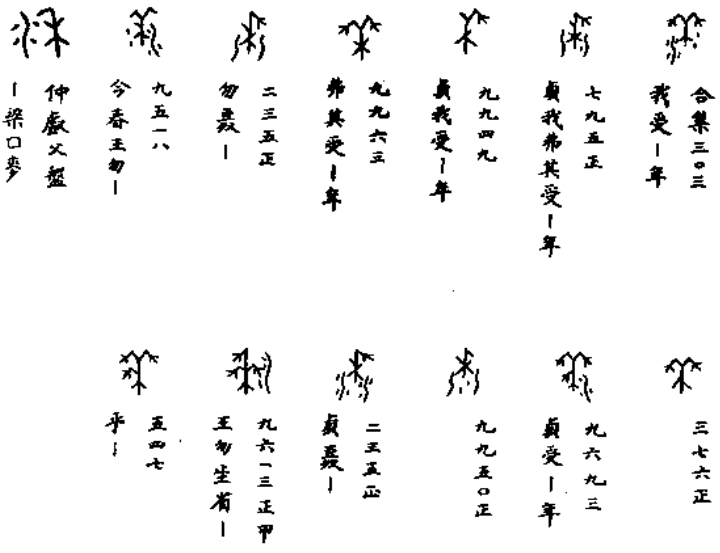 合集三〇三
我受丨年
七九五正
貞我弗其受丨年
九九四九
貞我受丨年
九九六三
弗其受丨年
二三五正
勿丨
九五一八
今春王勿丨
仲父盤
丨粱口麥
三七六正
九六九三
貞受丨年
九九五〇正
二三五正
貞丨
九六一三正甲
王勿生省丨
五四七
乎丨